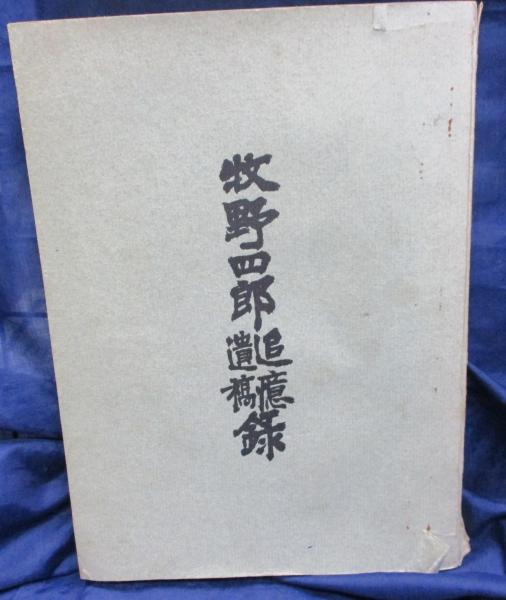 牧野四郎追憶遺稿録